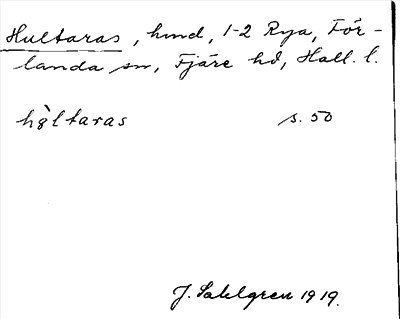 Hultaras, hmd, 1-2 Rya, För-
landa sn, Fjäre hd, Hall. l.
hùltaras s. 50
J. Sahlgren 1919.